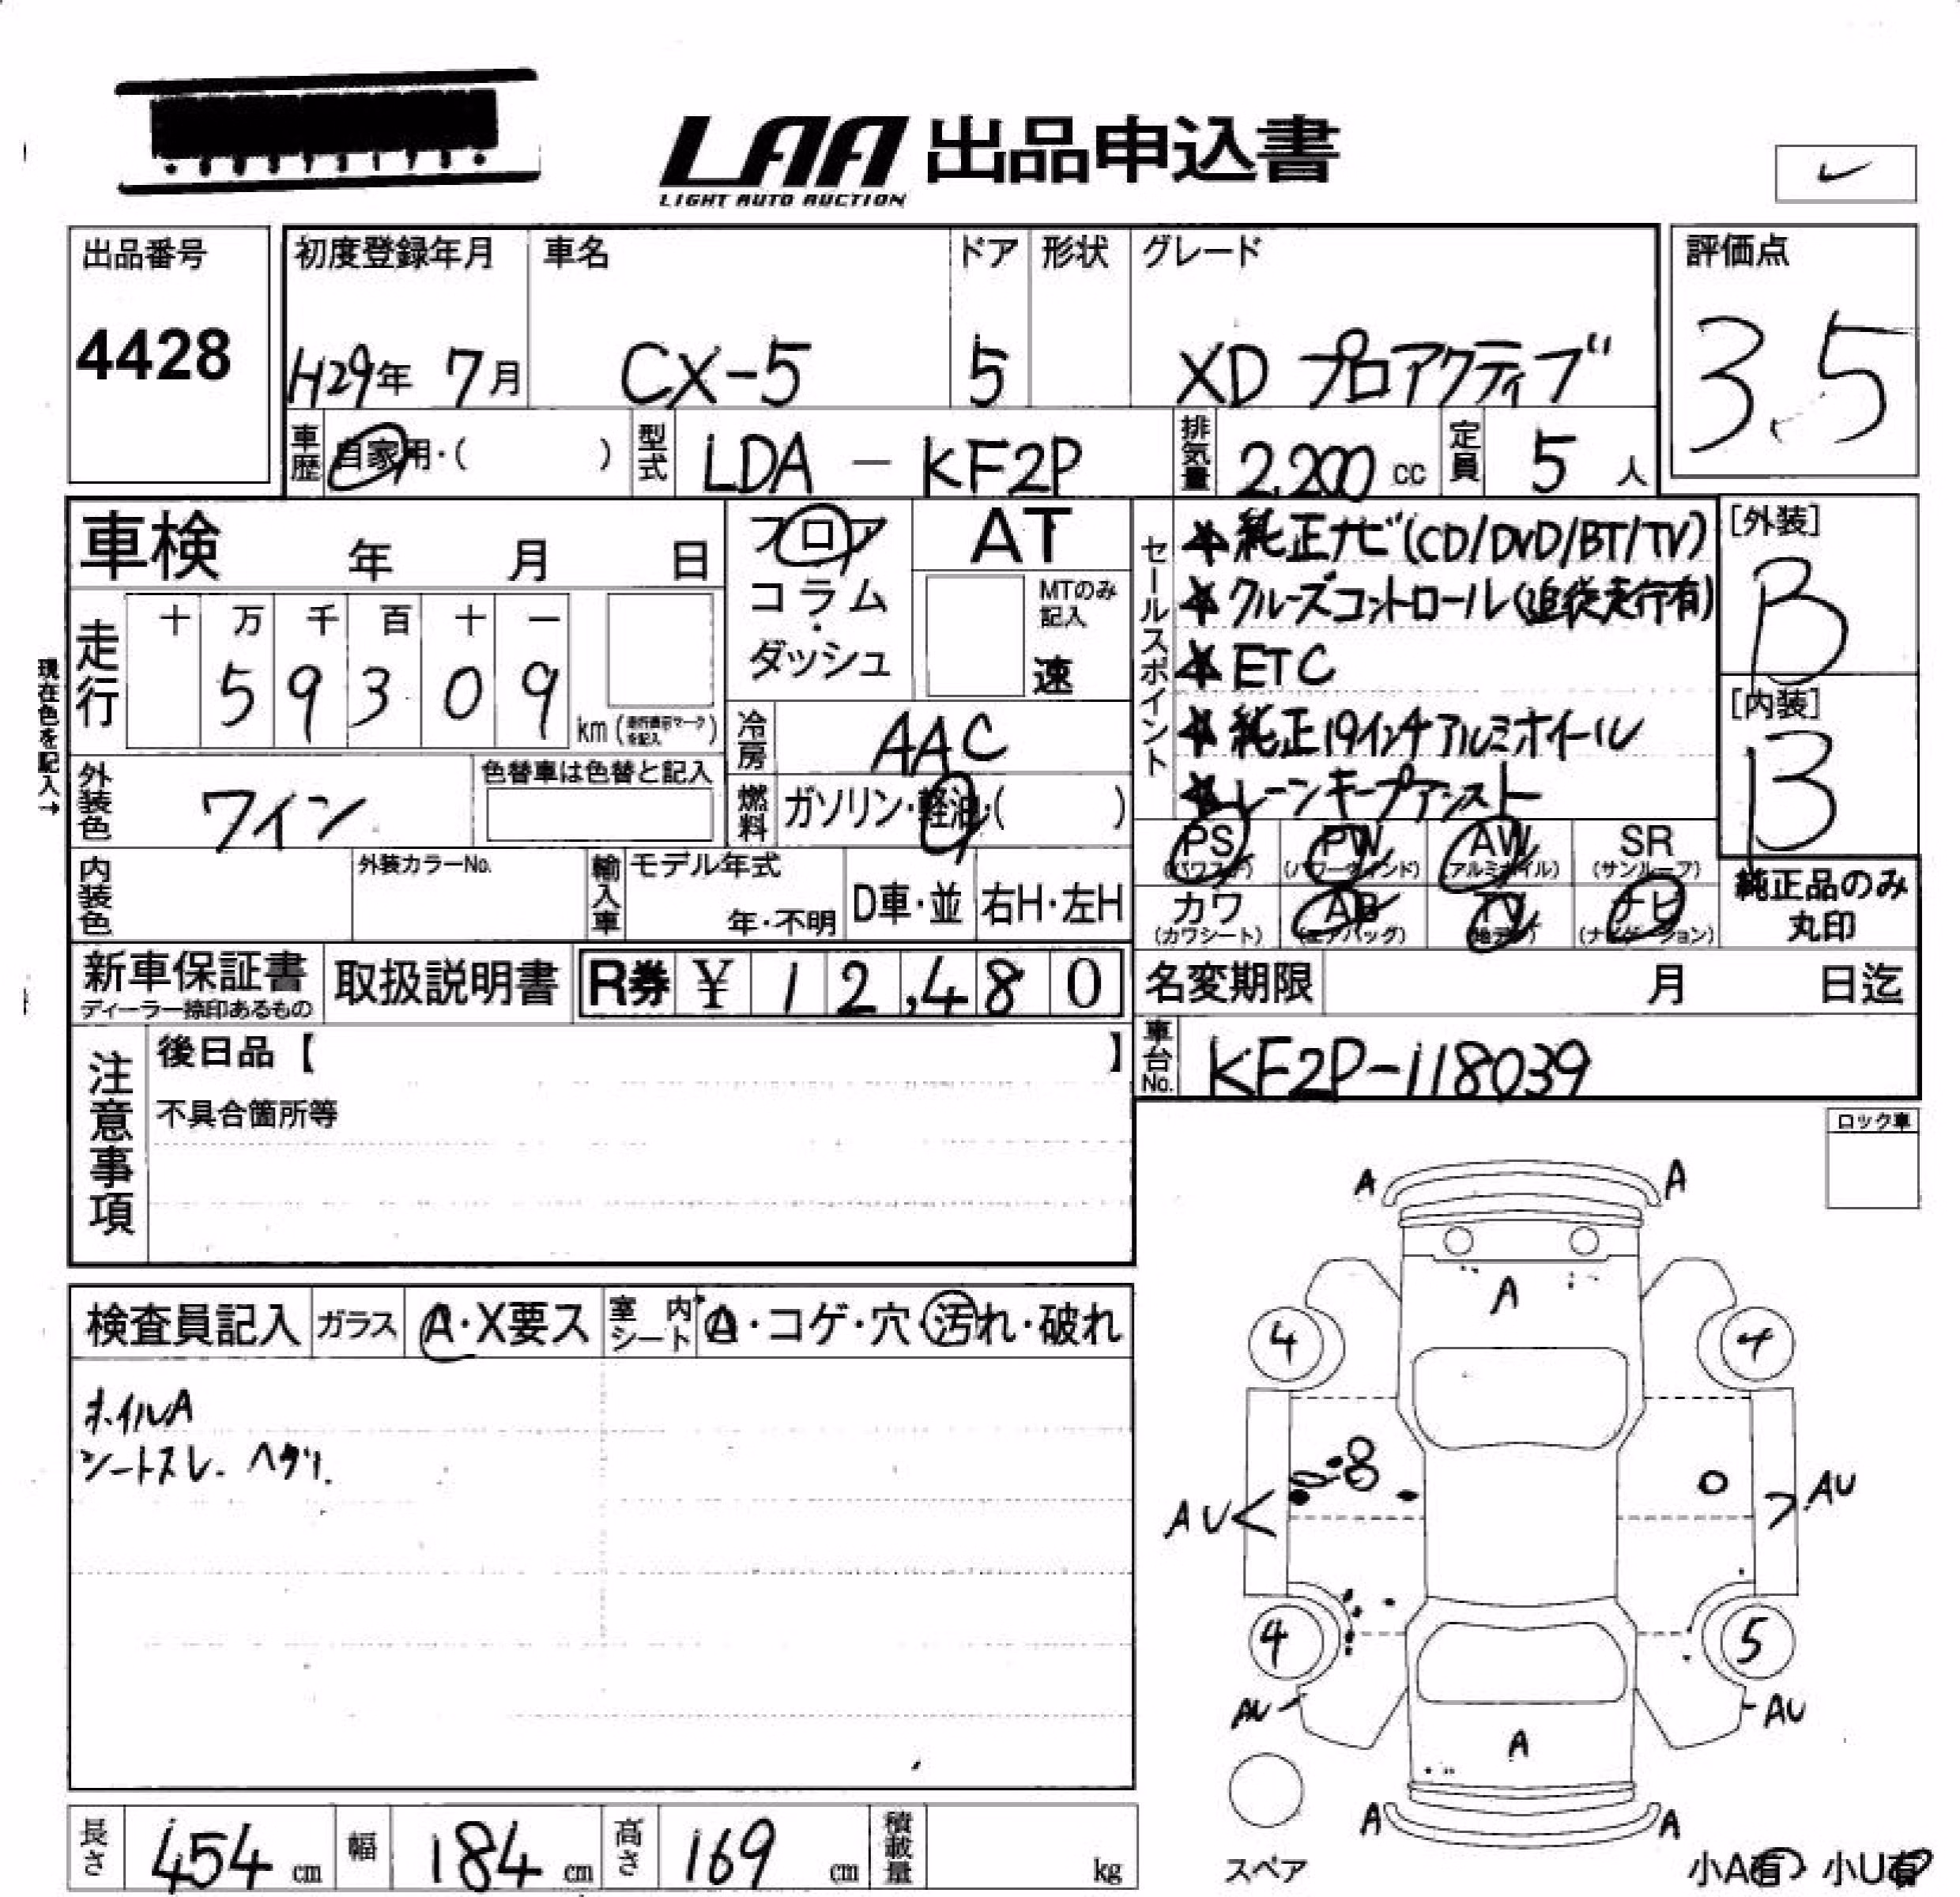 LAA 出品申込書
LIGHT AUTO AUCTION
出品番号
4428
初度登録年月
H29年 7月
車名
CX-5
ドア
5
形状
グレード
XD プロアクティブ
評価点
3.5
車歴
自家用・( )
型式
LDA - KF2P
排気量
2,200 cc
定員
5 人
車検 年 月 日
フロア
コラム
・
ダッシュ
AT
MTのみ
記入
速
セールスポイント
★純正ナビ(CD/DVD/BT/TV)
★クルーズコントロール(追従走行有)
★ETC
★純正19インチアルミホイール
★レーンキープアシスト
[外装]
B
[内装]
B
現在色を記入→
走行
十 万 千 百 十 一
5 9 3 0 9
km (走行表示マークを記入)
冷房
AAC
外装色
ワイン
色替車は色替と記入
燃料
ガソリン・軽油・( )
PS PW AW SR
(パワステ) (パワーウィンド) (アルミホイル) (サンルーフ)
カワ AB TV ナビ
(カワシート) (エアバッグ) (地デジ) (ナビゲーション)
純正品のみ
丸印
内装色
外装カラーNo.
輸入車
モデル年式
年・不明
D車・並
右H・左H
新車保証書
ディーラー捺印あるもの
取扱説明書
R券 ¥ 12,480
名変期限 月 日迄
車台No.
KF2P-118039
注意事項
後日品【 】
不具合箇所等
ロック車
検査員記入
ガラス
A・X要ス
室内シート
A・コゲ・穴・汚れ・破れ
ホイルA
シートスレ、ヘタリ、
A A
A
4 4
AU AU
4 5
AU AU
A
A A
スペア
小A有 小U有
長さ
454 cm
幅
184 cm
高さ
169 cm
積載量
kg